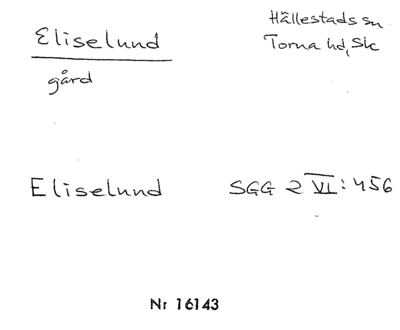 Eliselund
gård
Hällestads sn
Torna hd, Sk
Eliselund SGG 2 VI: 456
Nr 16143